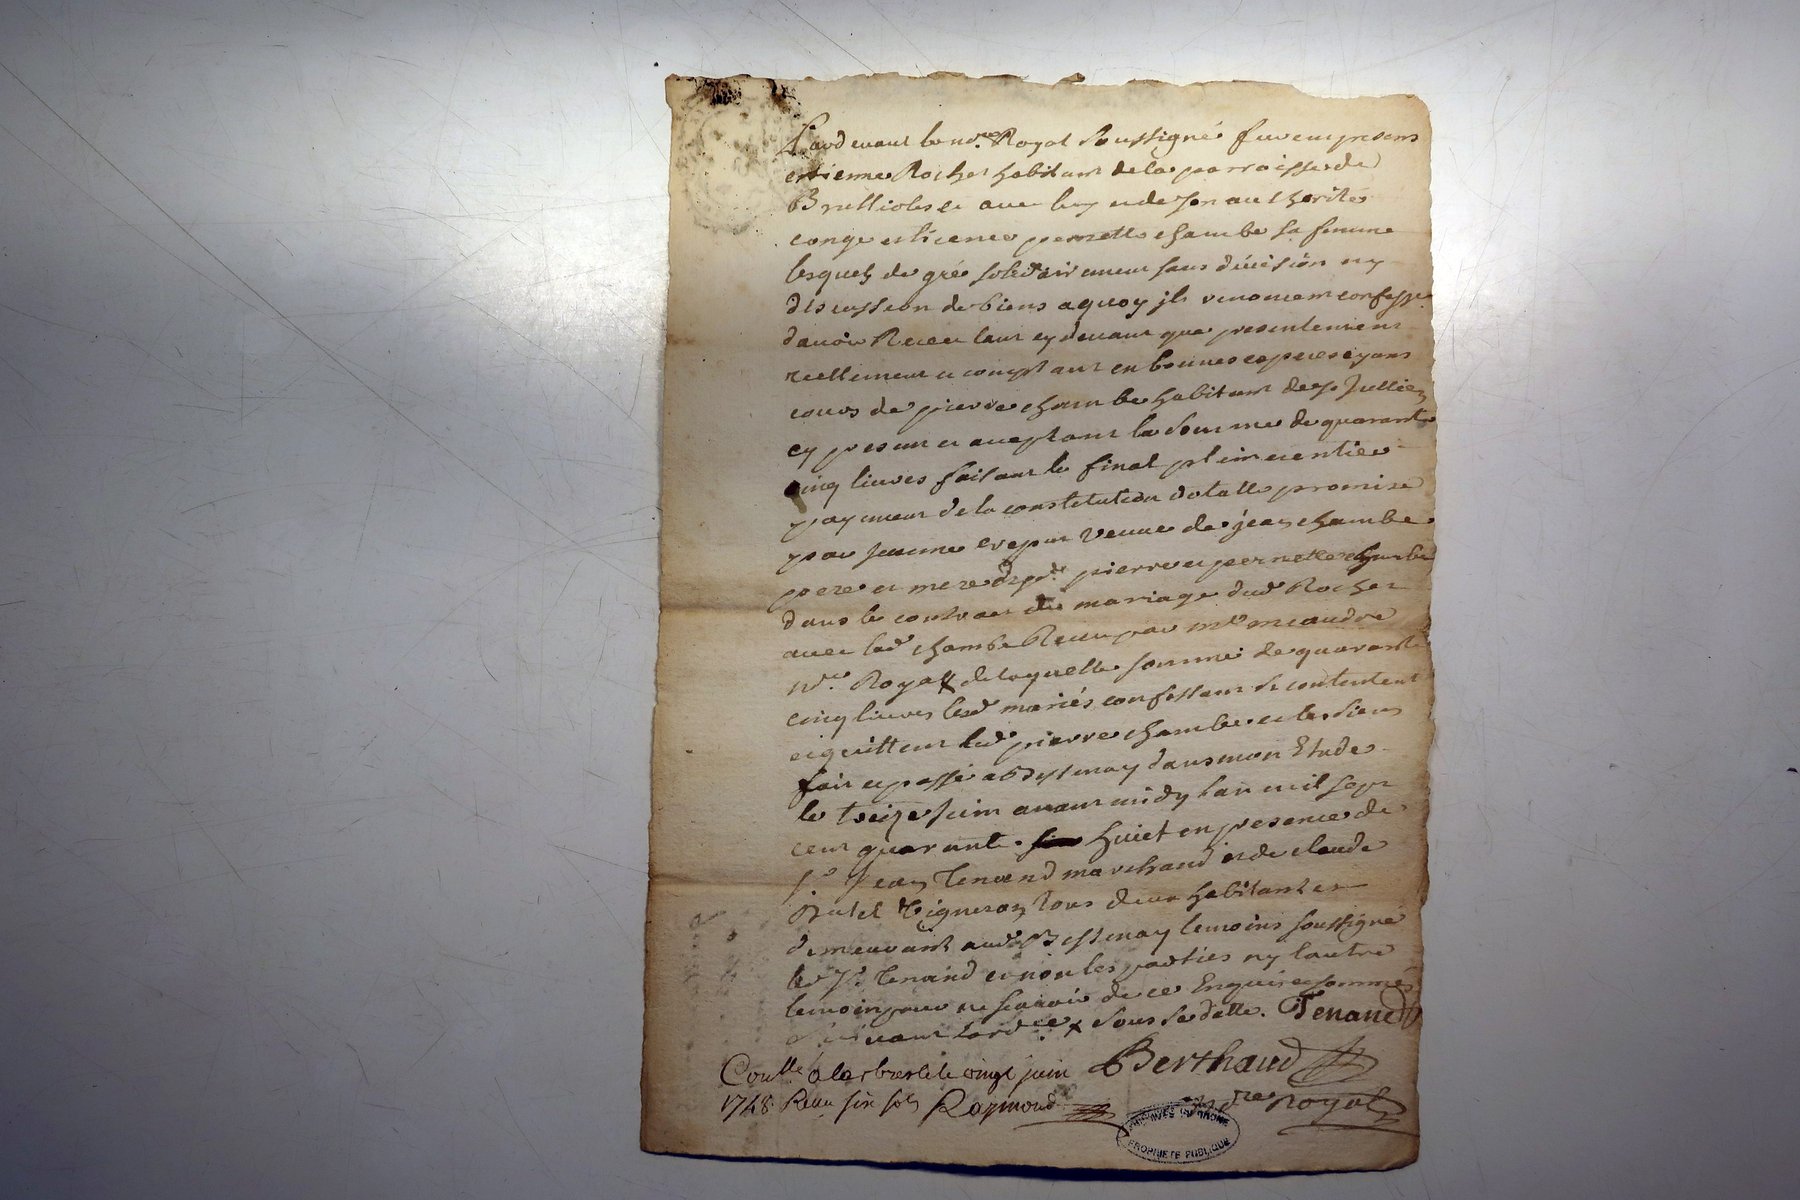 Pardevant le nore Royal Soussigné furent presens
estienne Rochet habitant de la parroisse de
Brullioles et avec luy et de son authorité
congé et licence pernette chambe sa femme
lesquels de gré solidairement sans division ny
discussion de biens a quoy ils renoncent confesse
davoir Receu tant cy devant que presentement
reellement et comptant en bonnes especes ayant
cours de pierre chambe habitant de St Jullien
cy present et aceptant la somme de quarante
cinq livres faisant le final plein et entier
payement de la constitution dotalle promise
par jeanne veuve de jean chambe
pere et mere dsd pierre et pernette chambe
dans le contract de mariage dud Rochet
avec lad chambe Receu par me meaudre
nre Royal de laquelle somme de quarante
cinq livres lesd mariés confessent se contentent
et quittent led pierre chambe et les siens
fait et passé a Bessenay dans mon Etude
le treize juin avant midy lan mil sept
cent quarante huict en presence de
sr Jean Tenand marchand et de claude
vigneron tous deux habitants et
demeurant aud Bessenay temoins soussigné
led sr Tenand et non les parties ny lautre
temoin pour ne scavoir de ce Enquis et sommés
suivant lordce sous sa dette. Tenand
Conllé a la bresle le vingt juin Berthaud
1748 Receu six sols Raymond nre Royal
ARCHIVES DU RHONE
PROPRIETE PUBLIQUE